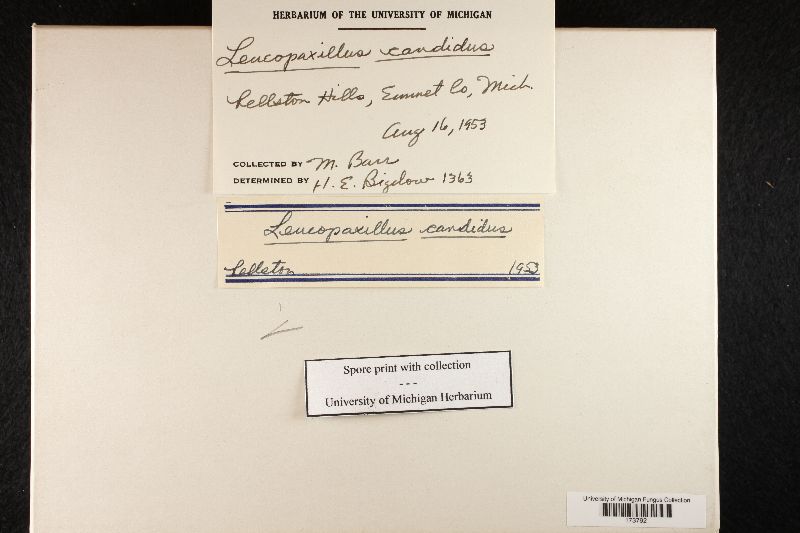 HERBARIUM OF THE UNIVERSITY OF MICHIGAN
Leucopaxillus candidus
Pellston Hills, Emmet Co, Mich.
Aug 16, 1953
COLLECTED BY M. Barr
DETERMINED BY H. E. Bigelow 1363
Leucopaxillus candidus
Pellston 1953
Spore print with collection
---
University of Michigan Herbarium
University of Michigan Fungus Collection
173792